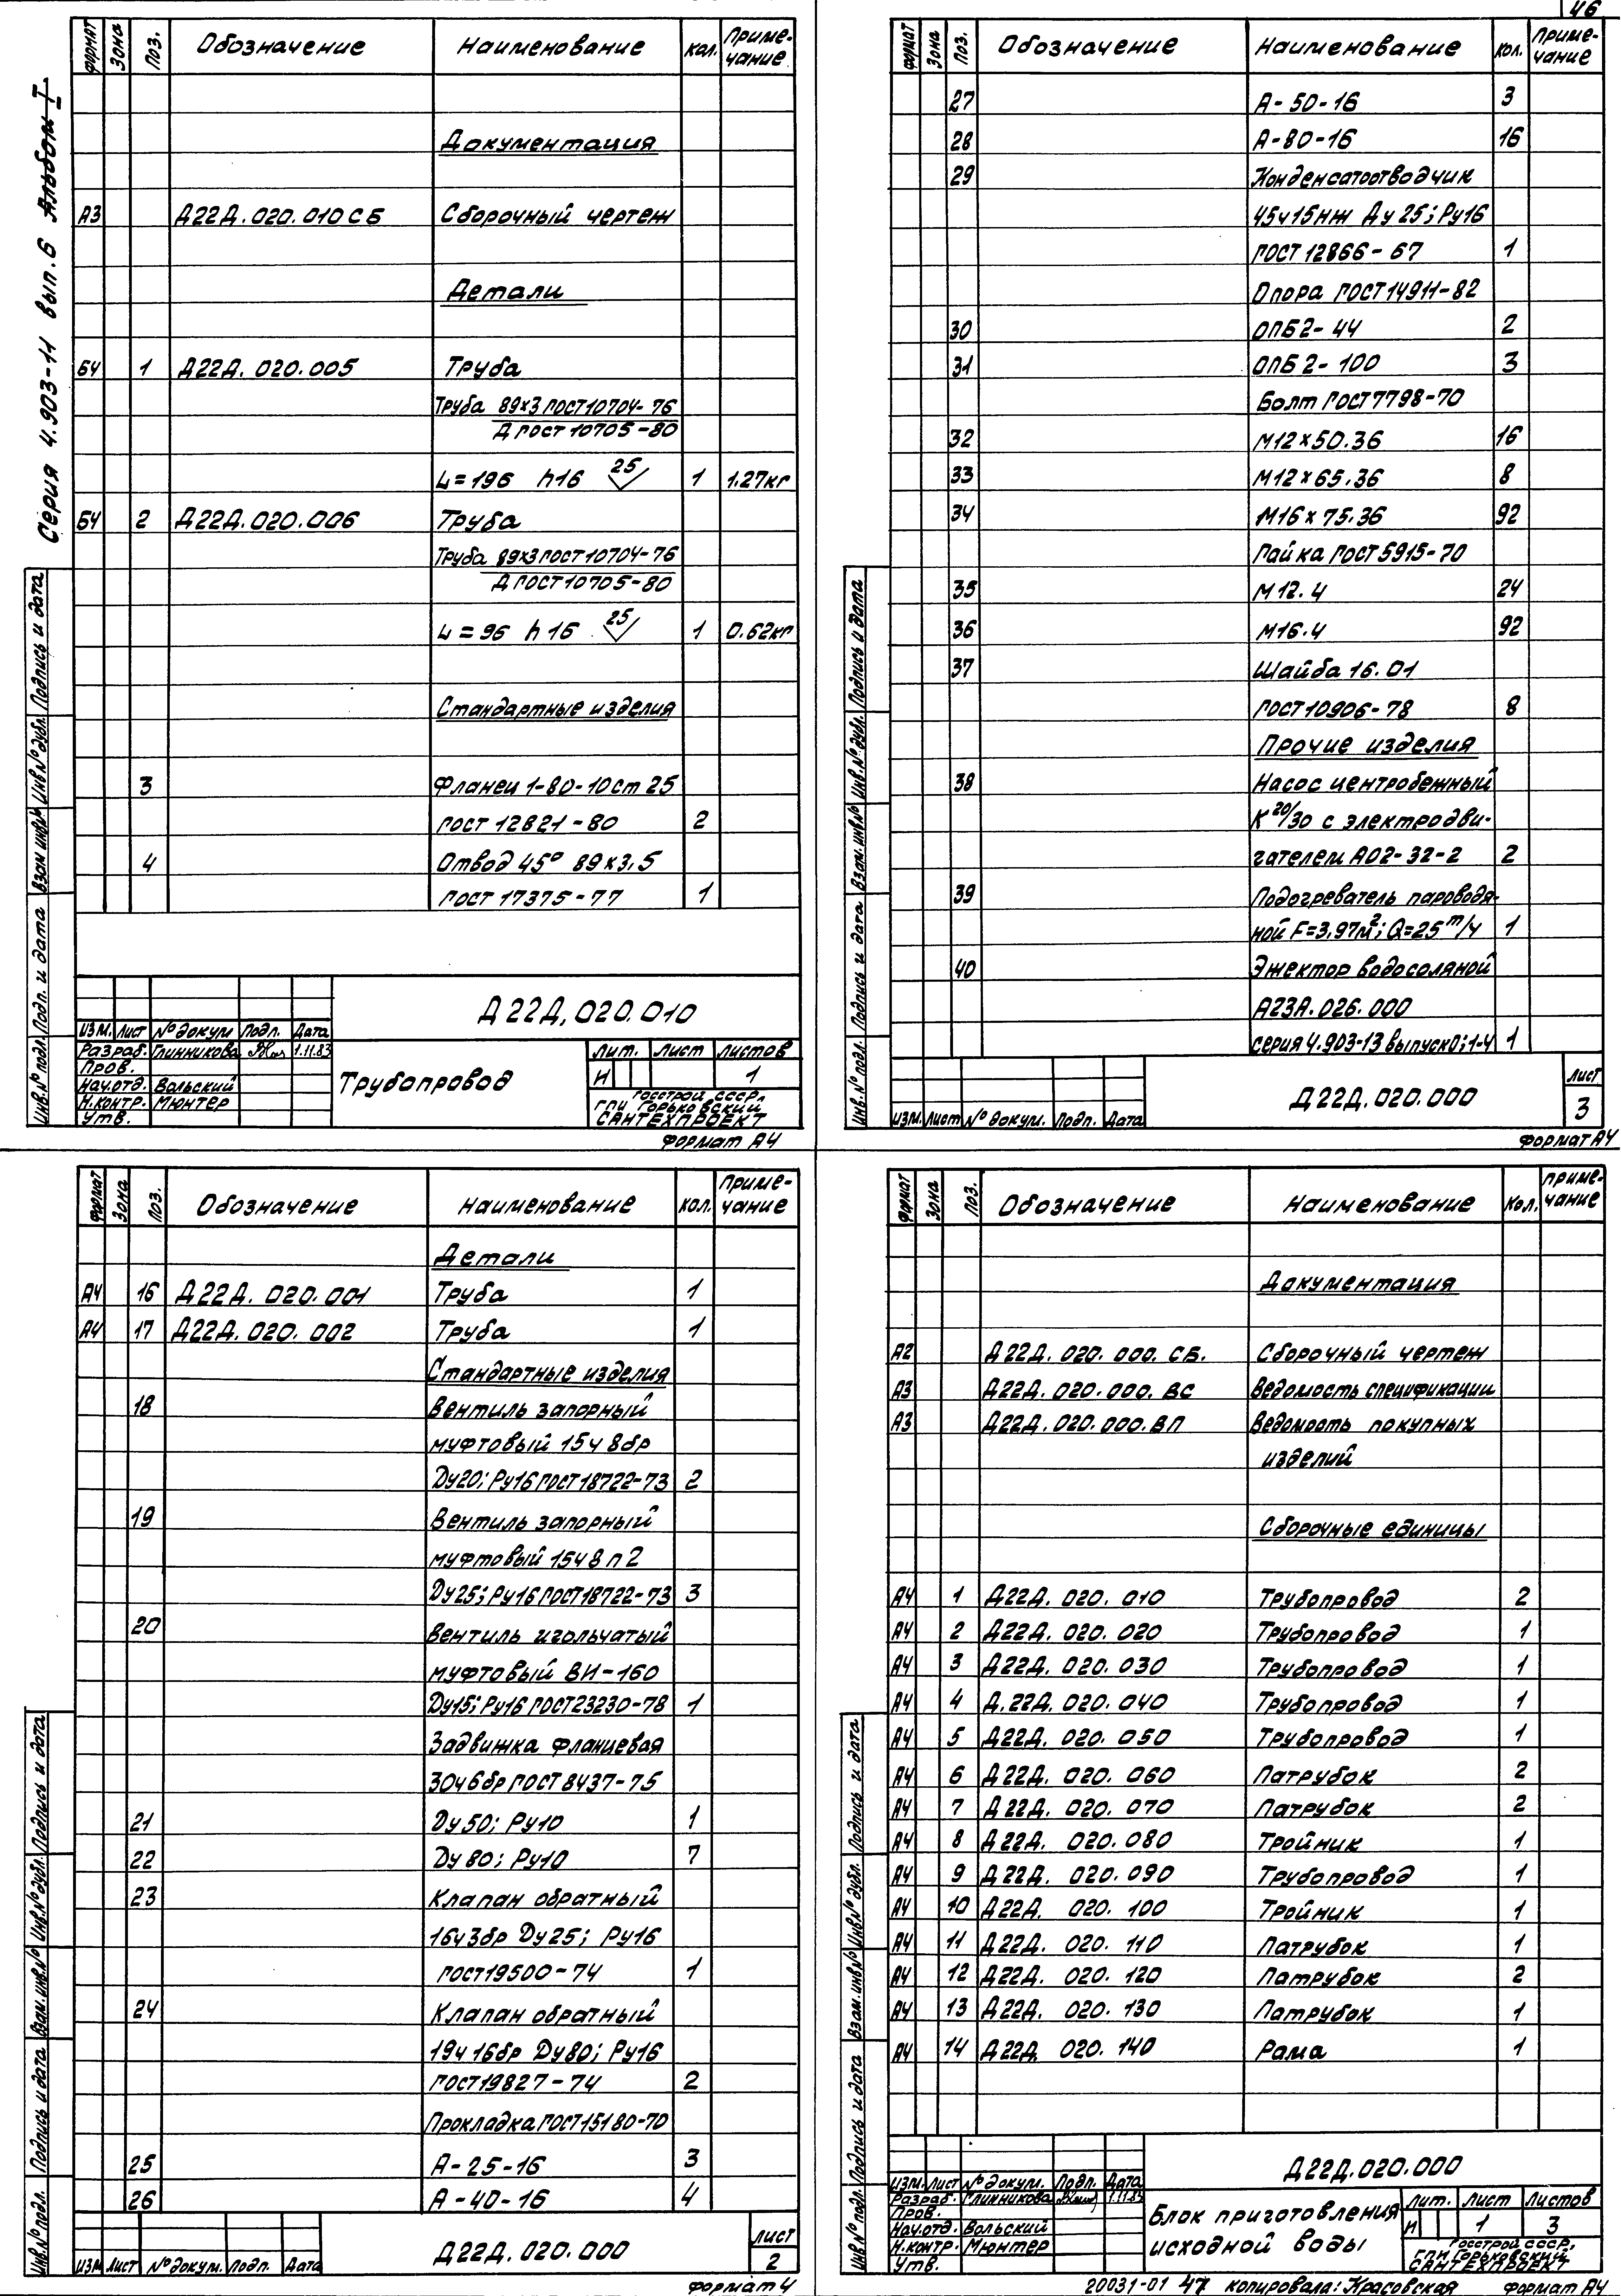 46
Серия 4.903-11 вып.6 Альбом I
Формат Зона Поз. Обозначение Наименование Кол. Примечание
Документация
А3 Д22Д.020.010СБ Сборочный чертеж
Детали
БЧ 1 Д22Д.020.005 Труба
Труба 89х3 ГОСТ 10704-76
Д ГОСТ 10705-80
L=196 h16 25 1 1.27кг
БЧ 2 Д22Д.020.006 Труба
Труба 89х3 ГОСТ 10704-76
Д ГОСТ 10705-80
L=96 h16 25 1 0.62кг
Стандартные изделия
3 Фланец 1-80-10 ст 25
ГОСТ 12821-80 2
4 Отвод 45° 89х3.5
ГОСТ 17375-77 1
Инв.№ подл. Подп. и дата Взам инв№ Инв.№ дубл. Подпись и дата
Д22Д.020.010
Изм. Лист № докум Подп. Дата
Разраб. Глинникова 1.11.83
Пров.
Нач.отд. Вольский
Н.контр. Мюнтер
Утв.
Трубопровод
Лит. Лист Листов
И 1
Госстрой СССР,
ГПИ Горьковский
САНТЕХПРОЕКТ
Формат А4
Формат Зона Поз. Обозначение Наименование Кол. Примечание
27 А-50-16 3
28 А-80-16 16
29 Конденсатоотводчик
45ч15нж Ду 25; Ру16
ГОСТ 12866-67 1
Опора ГОСТ 14911-82
30 ОПБ2-44 2
31 ОПБ2-100 3
Болт ГОСТ 7798-70
32 М12х50.36 16
33 М12х65.36 8
34 М16х75.36 92
Гайка ГОСТ 5915-70
35 М12.4 24
36 М16.4 92
37 Шайба 16.01
ГОСТ 10906-78 8
Прочие изделия
38 Насос центробежный
К 20/30 с электродви-
гателем АО2-32-2 2
39 Подогреватель пароводя-
ной F=3,97м²; Q=25 т/ч 1
40 Эжектор водосоляной
А23А.026.000
серия 4.903-13 выпуск 0; 1-4 1
Инв.№ подл. Подпись и дата Взам.инв.№ Инв.№ дубл. Подпись и дата
Изм. Лист № докум. Подп. Дата
Д22Д.020.000
Лист
3
Формат А4
Формат Зона Поз. Обозначение Наименование Кол. Примечание
Детали
А4 16 Д22Д.020.001 Труба 1
А4 17 Д22Д.020.002 Труба 1
Стандартные изделия
18 Вентиль запорный
муфтовый 15ч 8бр
Ду20; Ру16 ГОСТ 18722-73 2
19 Вентиль запорный
муфтовый 15ч 8п2
Ду25; Ру16 ГОСТ 18722-73 3
20 Вентиль игольчатый
муфтовый ВИ-160
Ду15; Ру16 ГОСТ 23230-78 1
Задвижка фланцевая
30ч6бр ГОСТ 8437-75
21 Ду 50; Ру10 1
22 Ду 80; Ру10 7
23 Клапан обратный
16ч3бр Ду25; Ру16
ГОСТ 19500-74 1
24 Клапан обратный
19ч16бр Ду80; Ру16
ГОСТ 19827-74 2
Прокладка ГОСТ 15180-70
25 А-25-16 3
26 А-40-16 4
Инв.№ подл. Подпись и дата Взам.инв.№ Инв.№ дубл. Подпись и дата
Изм Лист № докум. Подп. Дата
Д22Д.020.000
Лист
2
Формат 4
Формат Зона Поз. Обозначение Наименование Кол. Примечание
Документация
А2 Д22Д.020.000.СБ. Сборочный чертеж
А3 Д22Д.020.000.ВС Ведомость спецификации
А3 Д22Д.020.000.ВП Ведомость покупных
изделий
Сборочные единицы
А4 1 Д22Д.020.010 Трубопровод 2
А4 2 Д22Д.020.020 Трубопровод 1
А4 3 Д22Д.020.030 Трубопровод 1
А4 4 Д.22Д.020.040 Трубопровод 1
А4 5 Д22Д.020.050 Трубопровод 1
А4 6 Д22Д.020.060 Патрубок 2
А4 7 Д22Д.020.070 Патрубок 2
А4 8 Д22Д.020.080 Тройник 1
А4 9 Д22Д.020.090 Трубопровод 1
А4 10 Д22Д.020.100 Тройник 1
А4 11 Д22Д.020.110 Патрубок 1
А4 12 Д22Д.020.120 Патрубок 2
А4 13 Д22Д.020.130 Патрубок 1
А4 14 Д22Д.020.140 Рама 1
Инв.№ подл. Подпись и дата Взам.инв№ Инв.№ дубл. Подпись и дата
Д22Д.020.000
Изм. Лист № докум. Подп. Дата
Разраб. Глинникова 1.11.83
Пров.
Нач.отд. Вольский
Н.контр. Мюнтер
Утв.
Блок приготовления
исходной воды
Лит. Лист Листов
И 1 3
Госстрой СССР,
ГПИ Горьковский
САНТЕХПРОЕКТ
20031-01 47 копировала: Красовская Формат А4